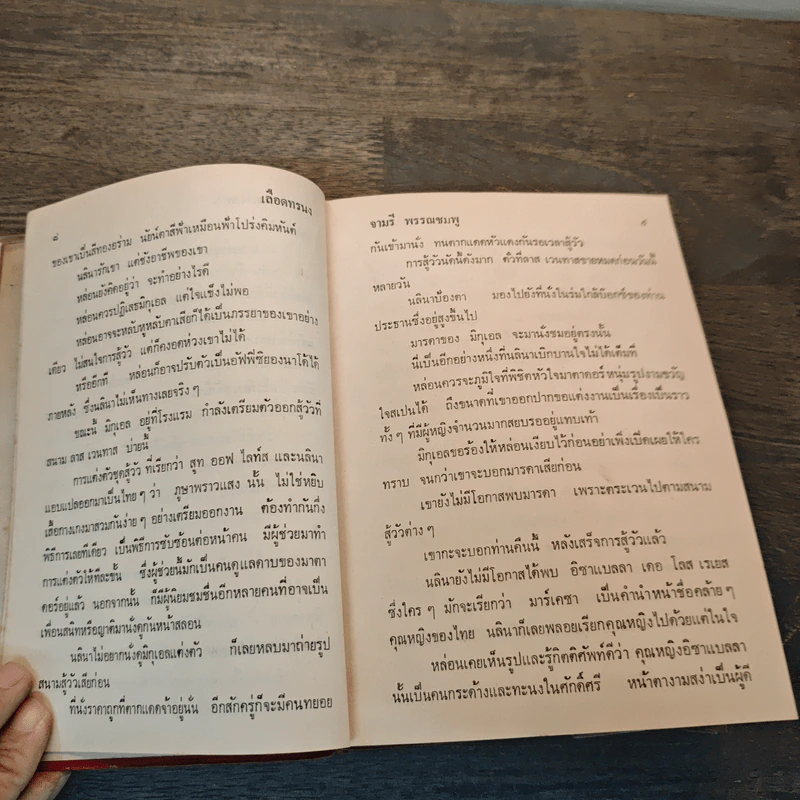 ๘
เลือดทรนง
ของเขาเป็นสีทองอร่าม นัยน์ตาสีฟ้าเหมือนฟ้าโปร่งคิมหันต์
นลินารักเขา แต่ชังอาชีพของเขา
หล่อนยังคิดอยู่ว่า จะทำอย่างไรดี
หล่อนควรปฏิเสธมิกุเอล แต่ใจแข็งไม่พอ
หล่อนอาจจะหลับหูหลับตาเสียก็ได้เป็นภรรยาของเขาอย่าง
เดียว ไม่สนใจการสู้วัว แต่ก็คงอดห่วงเขาไม่ได้
หรืออีกที หล่อนก็อาจปรับตัวเป็นอัฟฟิซิยองนาโดได้
ภายหลัง ซึ่งนลินาไม่เห็นทางเลยจริง ๆ
ขณะนี้ มิกุเอล อยู่ที่โรงแรม กำลังเตรียมตัวออกสู้วัวที่
สนาม ลาส เวนทาส บ่ายนี้
การแต่งตัวชุดสู้วัว ที่เรียกว่า สูท ออฟ ไลท์ส และนลินา
แอบแปลออกมาเป็นไทย ๆ ว่า ภูษาพราวแสง นั้น ไม่ใช่หยิบ
เสื้อกางเกงมาสวมกันง่าย ๆ อย่างเตรียมออกงาน ต้องทำกันกึ่ง
พิธีการเลยทีเดียว เป็นพิธีการซับซ้อนต่อหน้าคน มีผู้ช่วยมาทำ
การแต่งตัวให้ทีละชั้น ซึ่งผู้ช่วยนี้มักเป็นคนดูแลดาบของมาตา
ดอร์อยู่แล้ว นอกจากนั้น ก็มีผู้นิยมชมชื่นอีกหลายคนที่อาจเป็น
เพื่อนสนิทหรือญาติมานั่งดูกันหน้าสลอน
นลินาไม่อยากนั่งดูมิกุเอลแต่งตัว ก็เลยหลบมาถ่ายรูป
สนามสู้วัวเสียก่อน
ที่นั่งราคาถูกที่ตากแดดจ้าอยู่นั่น อีกสักครู่ก็จะมีคนทยอย
จามรี พรรณชมพู
๙
กันเข้ามานั่ง ทนตากแดดหัวแดงกันรอเวลาสู้วัว
การสู้วัวนัดนี้ดังมาก ตั๋วที่ลาส เวนทาสขายหมดก่อนวันนี้
หลายวัน
นลินาป้องตา มองไปยังที่นั่งในร่มใกล้บ๊อกซ์ของท่าน
ประธานซึ่งอยู่สูงขึ้นไป
มารดาของ มิกุเอล จะมานั่งชมอยู่ตรงนั้น
นี่เป็นอีกอย่างหนึ่งที่นลินาเบิกบานใจไม่ได้เต็มที่
หล่อนควรจะภูมิใจที่พิชิตหัวใจมาตาดอร์หนุ่มรูปงามขวัญ
ใจสเปนได้ ถึงขนาดที่เขาออกปากขอแต่งงานเป็นเรื่องเป็นราว
ทั้ง ๆ ที่มีผู้หญิงจำนวนมากสยบรออยู่แทบเท้า
มิกุเอลขอร้องให้หล่อนเงียบไว้ก่อนอย่าเพิ่งเปิดเผยให้ใคร
ทราบ จนกว่าเขาจะบอกมารดาเสียก่อน
เขายังไม่มีโอกาสพบมารดา เพราะตระเวนไปตามสนาม
สู้วัวต่าง ๆ
เขากะจะบอกท่านคืนนี้ หลังเสร็จการสู้วัวแล้ว
นลินายังไม่มีโอกาสได้พบ อิซาเบลลา เดอ โลส เรเยส
ซึ่งใคร ๆ มักจะเรียกว่า มาร์เคซา เป็นคำนำหน้าชื่อคล้าย ๆ
คุณหญิงของไทย นลินาก็เลยพลอยเรียกคุณหญิงไปด้วยแต่ในใจ
หล่อนเคยเห็นรูปและรู้กิตติศัพท์ดีว่า คุณหญิงอิซาเบลลา
นั้นเป็นคนกระด้างและทะนงในศักดิ์ศรี หน้าตางามสง่าเป็นผู้ดี